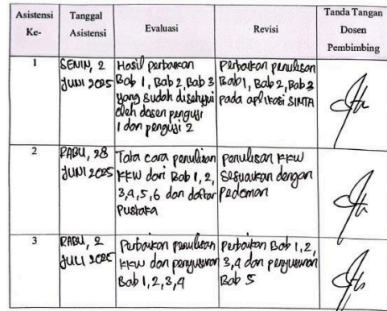 Asistensi Ke-
Tanggal Asistensi
Evaluasi
Revisi
Tanda Tangan Dosen Pembimbing
1
SENIN, 2
JUNI 2025
Hasil perbaikan
Bab 1, Bab 2, Bab 3
yang sudah disetujui
oleh dosen penguji
1 dan penguji 2
Perbaikan penulisan
Bab 1, Bab 2, Bab 3
pada aplikasi SINTA
2
RABU, 28
JUNI 2025
Tata cara penulisan
KKW dari Bab 1, 2,
3,4,5,6 dan daftar
Pustaka
penulisan KKW
Sesuaikan dengan
Pedoman
3
RABU, 2
JULI 2025
Perbaikan penulisan
KKW dan penyusunan
Bab 1,2,3,4
Perbaikan Bab 1,2,
3,4 dan penyusunan
Bab 5